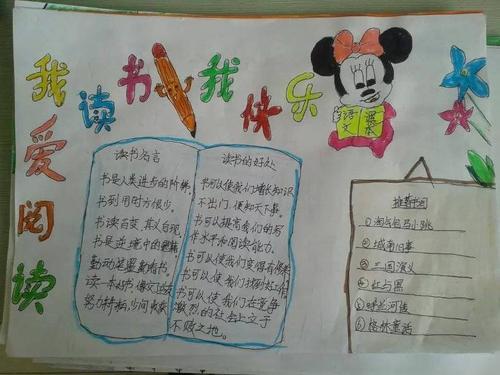 我读书我快乐
我爱阅读
语文
课本
读书名言
书是人类进步的阶梯。
书到用时方恨少。
读书百变,其义自现。
书是逆境中的
读一本好书
读书的好处
书可以使我们增长知识
不出门,便知天下事。
书可以提高我们的写
作水平和阅读能力。
书可以使我们变得有修养
书可以使我们找到好工作
书可以使我们在竞争
激烈的社会上立于
不败之地。
推荐书目
①淘气包马小跳
②城南旧事
③三国演义
④红与黑
⑤呼兰河传
⑥格林童话